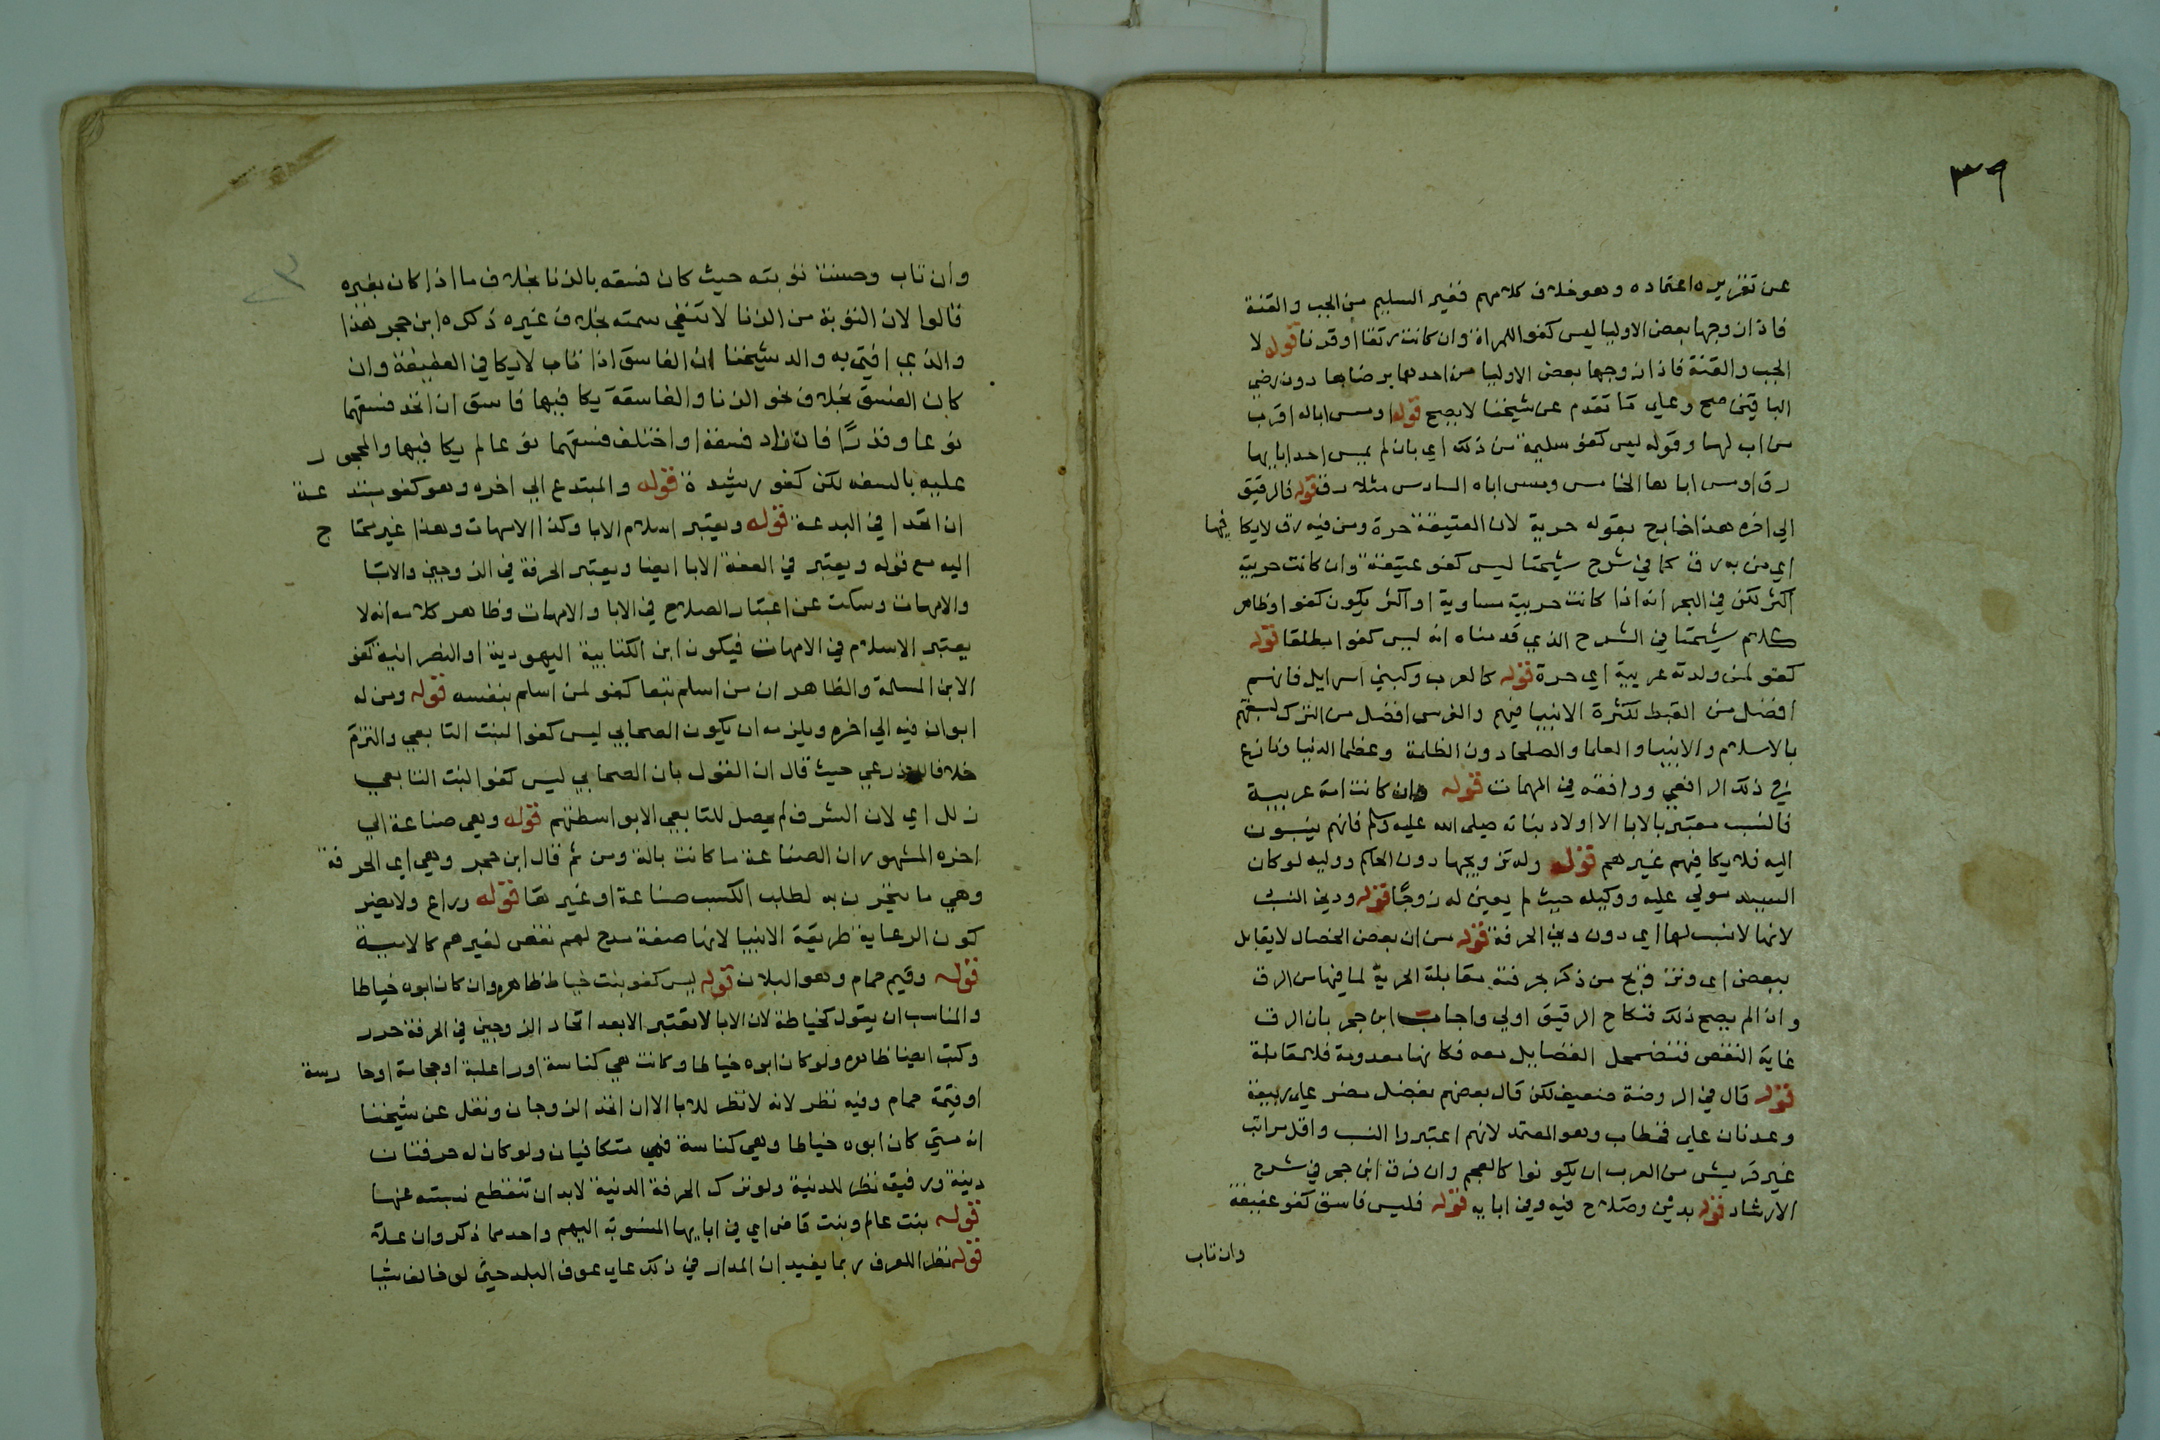 ٣٩
عن تقريره اعتماده وهو خلاف كلامهم فغير السليم من الجب والعنة
فاذا زوجها بعض الاوليا ليس كفوا للمراة وان كانت رتقا او قرنا قوله لا
الجب والعنة فاذا زوجها بعض الاوليا من احدهما برضاها دون رضي
الباقين صح وعلي ما تقدم عن شيخنا لا يصح قوله او مس ابا له اقرب
من اب لها وقوله ليس كفو سليمة من ذلك اي بان لم يمس احد ابايها
رق او مس اباها الخامس ومس اباه السادس مثلا رق قوله فالرقيق
الي اخره هذا خارج بقوله حرية لان العتيقة حرة ومن فيه رق لا يكافيها
اي من به رق كما في شرح شيخنا ليس كفو عتيقة وان كانت حريته
اكثر لكن في البحر انه اذا كانت حريته مساوية او اكثر يكون كفوا وظاهر
كلام شيخنا في الشرح الذي قدمناه انه ليس كفوا مطلقا قوله
كفو لمن ولدته عربية اي حرة قوله كالعرب وكبني اسرايل فانهم
افضل من القبط لكثرة الانبيا فيهم والفرس افضل من الترك لسبقهم
بالاسلام والانبيا والعلما والصلحا دون الظلمة وعظما الدنيا ونازع
في ذلك الرافعي ووافقه في المهمات قوله وان كانت امه عربية
فالنسب معتبر بالابا الا اولاد بناته صلى الله عليه وسلم فانهم ينسبون
اليه فلا يكافيهم غيرهم قوله وله تزويجها دون الحاكم ووليه لو كان
السيد مولي عليه ووكيله حيث لم يعين له زوجًا قوله ودني النسب
لانها لا نسب لها اي دون دني الحرفة قوله من ان بعض الخصال لا يقابل
ببعض اي ونزقبح من ذكر بحرفته مقابلة الحرية لما فيها من الرق
وان لم يصح ذلك فنكاح الرقيق اولي واجاب ابن حجر بان الرق
غاية النقص فتضمحل الفضايل معه فكانها معدومة فلا مقابلة
قوله قال في الروضة ضعيف لكن قال بعضهم بفضل مضر علي ربيعة
وعدنان علي قحطان وهو المعتمد لانهم اعتبروا النسب واقل مراتب
غير قريش من العرب ان يكونوا كالعجم وان فرق ابن حجر في شرح
الارشاد قوله بدين وصلاح فيه وفي ابايه قوله فليس فاسق كفو عفيفة
وان تاب
وان تاب وحسنت توبته حيث كان فسقه بالزنا بخلاف ما اذا كان بغيره
قالوا لان التوبة من الزنا لا تنفي سمته بخلاف غيره ذكره ابن حجر هذا
والذي افتي به والد شيخنا ان الفاسق اذا تاب لا يكافي العفيفة وان
كان الفسق بخلاف نحو الزنا والفاسقة يكافيها فاسق ان اتحد فسقهما
نوعا وقدرًا فان زاد فسقه او اختلف فسقهما نوعا لم يكافيها والمحجور
عليه بالسفه لكن كفو رشيدة قوله والمبتدع الي اخره وهو كفو مبتدعة
ان اتحدا في البدعة قوله ويعتبر اسلام الابا وكذا الامهات وهذا غير محتاج
اليه مع قوله ويعتبر في العفة الابا ايضا ويعتبر الحرفة في الزوجين والابا
والامهات وسكت عن اعتبار الصلاح في الابا والامهات وظاهر كلامه انه لا
يعتبر الاسلام في الامهات فيكون ابن الكتابية اليهودية او النصرانية كفو
الابن المسلمة والظاهر ان من اسلم تبعا كفو لمن اسلم بنفسه قوله ومن له
ابوان فيه الي اخره ويلزمه ان يكون الصحابي ليس كفوا لبنت التابعي والتزم
خلافا للاذرعي حيث قال ان القول بان الصحابي ليس كفوا لبنت التابعي
زلل اي لان الشرف لم يحصل للتابعي الا بواسطتهم قوله وهي صناعة الي
اخره المشهور ان الصناعة ما كانت بالة ومن ثم قال ابن حجر وهي اي الحرفة
وهي ما يتحرف به لطلب الكسب صناعة او غيرها قوله وراع ولا يضر
كون الرعاية طريقة الانبيا لانها صفة مدح لهم نقص لغيرهم كالامية
قوله وقيم حمام وهو البلان قوله ليس كفو بنت خياط ظاهره وان كان ابوه خياطا
والمناسب ان يقول كخياطة لان الابا لا تعتبر الا بعد اتحاد الزوجين في الحرفة حرر
وكتب ايضا ظاهره ولو كان ابوه خياطا وكانت هي كناسة او راعلبة او حجامة او حارسة
او قيمة حمام وفيه نظر لانه لا نظر للابا الا ان اتحد الزوجان ونقل عن شيخنا
انه متي كان ابوه خياطا وهي كناسة فهي متكافيان ولو كان له حرفتان
دنية ورفيعة نظر للدنية ولو ترك الحرفة الدنية لا بد ان تنقطع نسبته عنها
قوله بنت عالم وبنت قاض اي في ابايها المنسوبة اليهم واحد مما ذكر وان علا
قوله نظر اللعرف ربما يفيد ان المدار في ذلك علي عرف البلد حتي لو خالف شيا